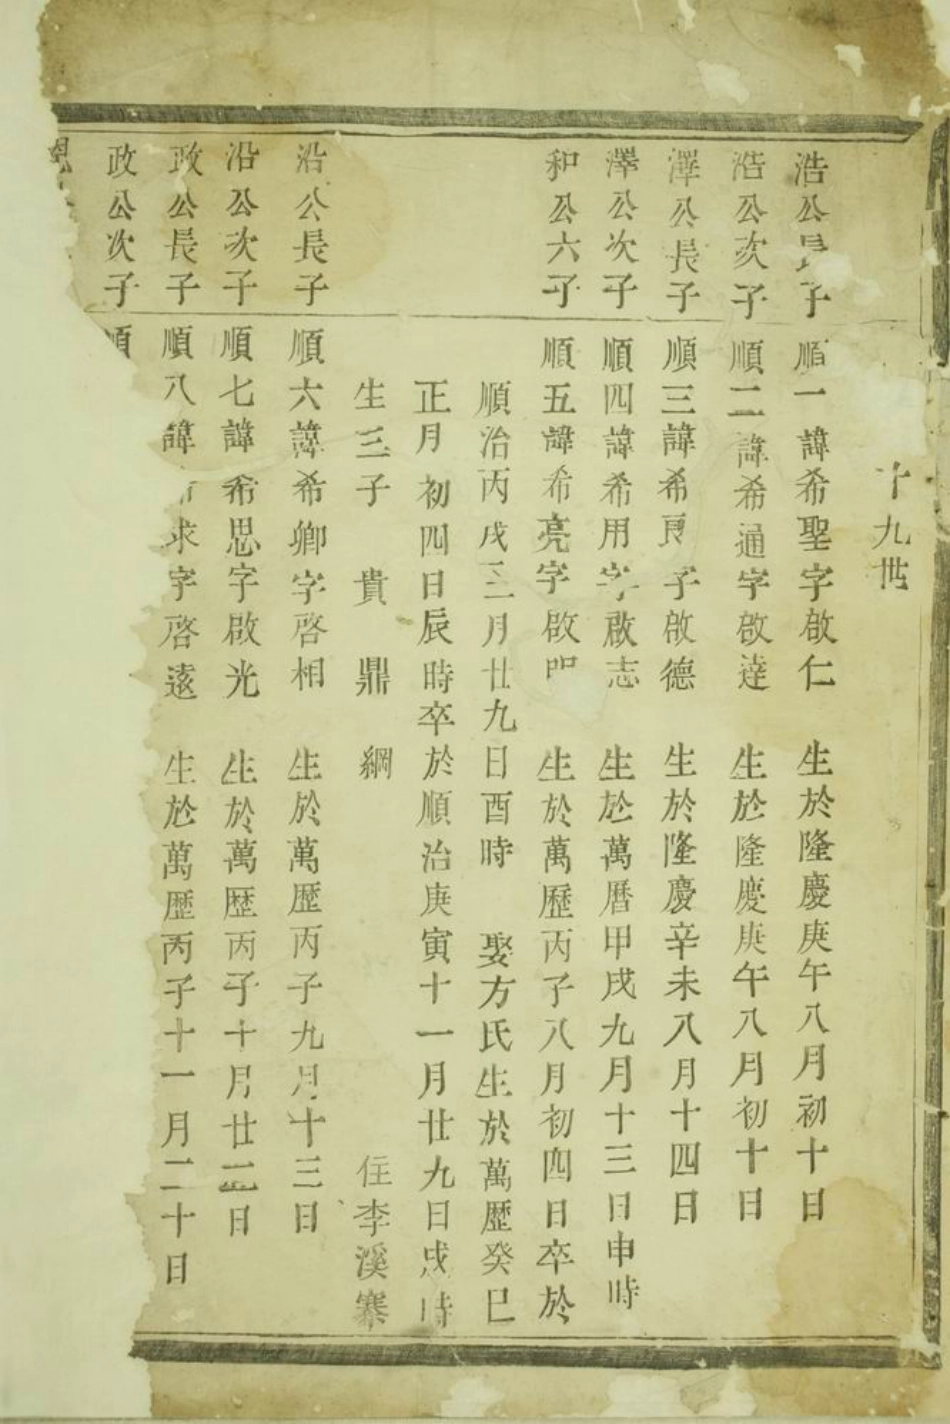 十九世
浩公長子
順一諱希聖字啟仁 生於隆慶庚午八月初十日
浩公次子
順二諱希通字啟達 生於隆慶庚午八月初十日
澤公長子
順三諱希良字啟德 生於隆慶辛未八月十四日
澤公次子
順四諱希用字啟志 生於萬曆甲戌九月十三日申時
和公六子
順五諱希亮字啟 生於萬歷丙子八月初四日卒於
順治丙戌三月廿九日酉時 娶方氏生於萬歷癸巳
正月初四日辰時卒於順治庚寅十一月廿九日戌時
生三子 貴 鼎 綱 住李溪寨
沿公長子
順六諱希卿字啓相 生於萬歷丙子九月十三日
沿公次子
順七諱希思字啟光 生於萬歷丙子十月廿二日
政公長子
順八諱希求字啓遠 生於萬歷丙子十一月二十日
政公次子
順